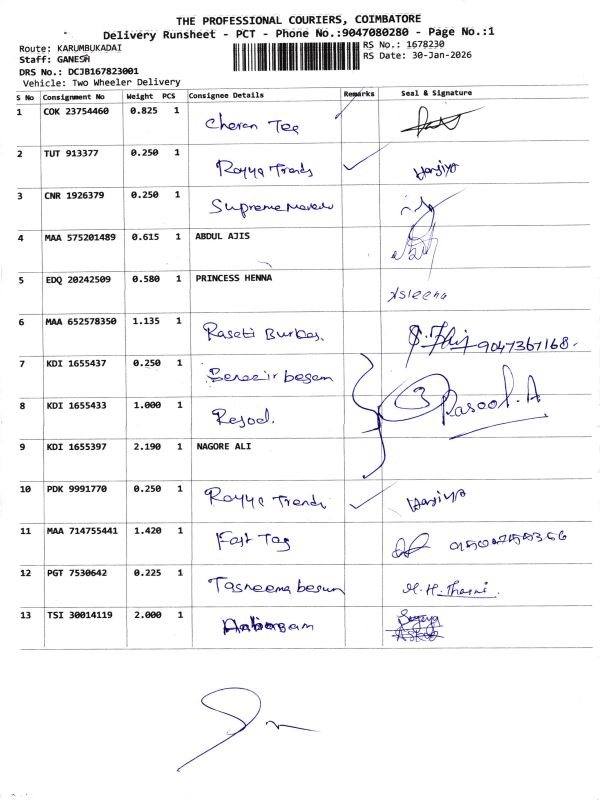 THE PROFESSIONAL COURIERS, COIMBATORE
Delivery Runsheet - PCT - Phone No.:9047080280 - Page No.:1
Route: KARUMBUKADAI
RS No.: 1678230
Staff: GANESH
RS Date: 30-Jan-2026
DRS No.: DCJB167823001
Vehicle: Two Wheeler Delivery
S No Consignment No Weight PCS Consignee Details Remarks Seal & Signature
1 COK 23754460 0.825 1 Cheran Tee
2 TUT 913377 0.250 1 Rayya Trends Hanjiya
3 CNR 1926379 0.250 1 Supreme
4 MAA 575201489 0.615 1 ABDUL AJIS
5 EDQ 20242509 0.580 1 PRINCESS HENNA
Asleena
6 MAA 652578350 1.135 1 9047367168.
7 KDI 1655437 0.250 1 begam
8 KDI 1655433 1.000 1 3 Rasool. A
9 KDI 1655397 2.190 1 NAGORE ALI
10 PDK 9991770 0.250 1 Rayya Trends Hanjiya
11 MAA 714755441 1.420 1 Fast Tag
12 PGT 7530642 0.225 1 Tasneema begum
13 TSI 30014119 2.000 1